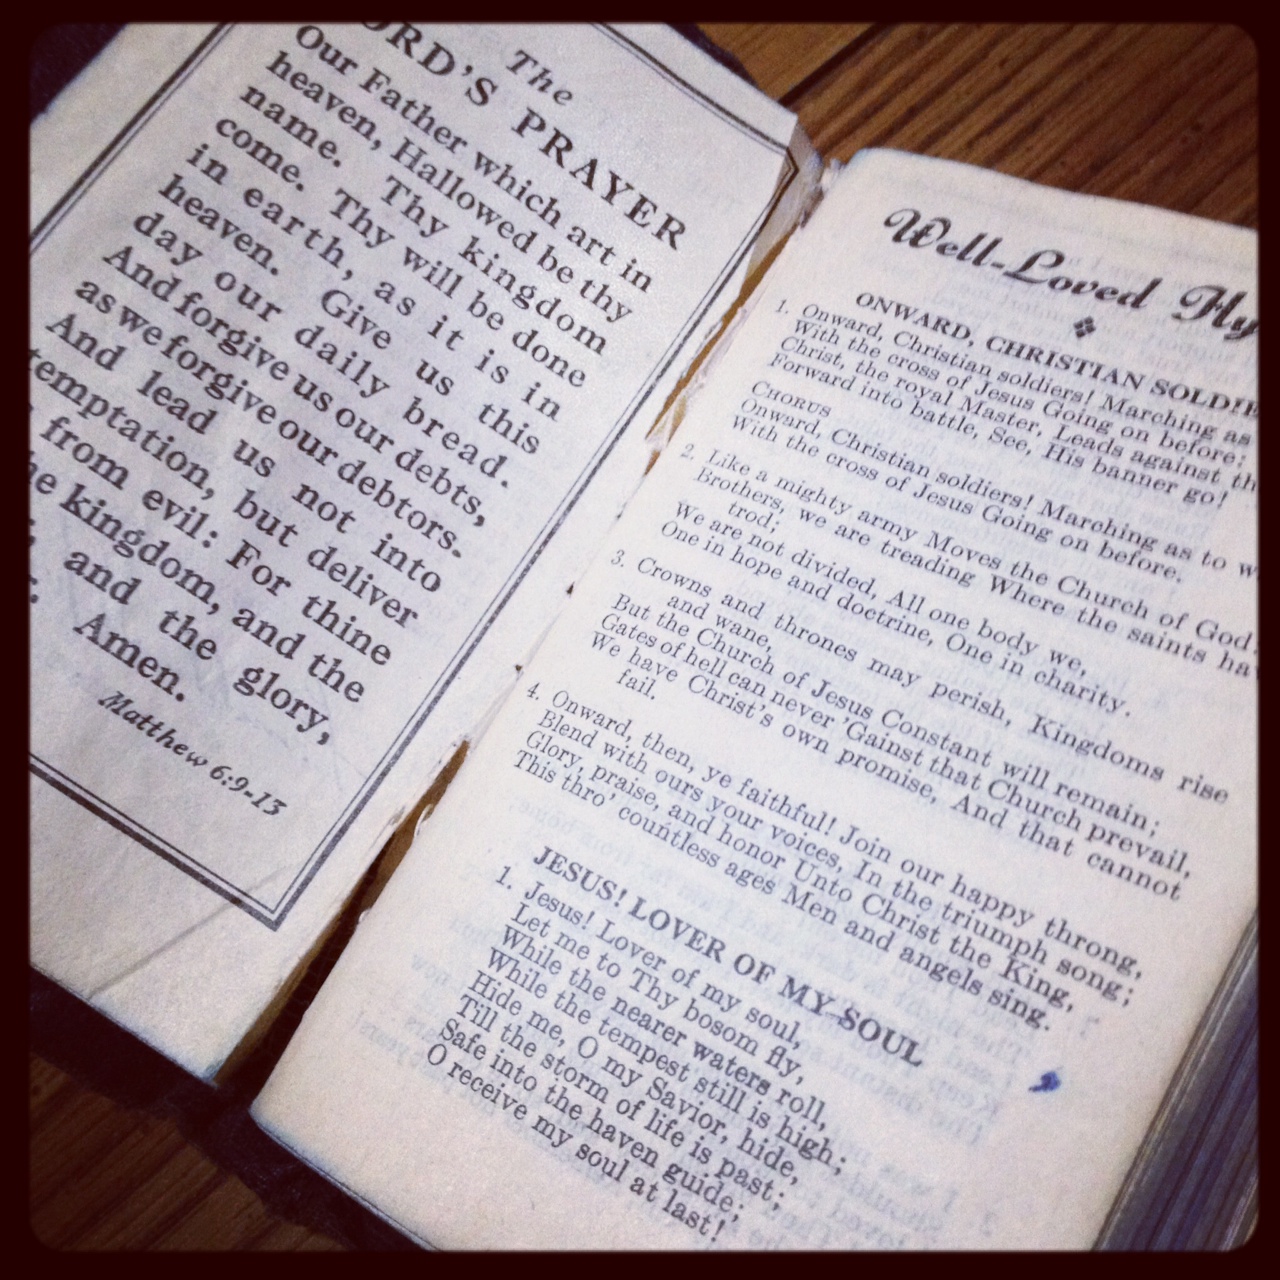 The
ORD'S PRAYER
Our Father which art in
heaven, Hallowed be thy
name. Thy kingdom
come. Thy will be done
in earth, as it is in
heaven. Give us this
day our daily bread.
And forgive us our debts,
as we forgive our debtors.
And lead us not into
temptation, but deliver
from evil: For thine
he kingdom, and the
and the glory,
Amen.
Matthew 6:9-13
Well-Loved Hy
ONWARD, CHRISTIAN SOLDIE
1. Onward, Christian soldiers! Marching as
With the cross of Jesus Going on before;
Christ, the royal Master, Leads against th
Forward into battle, See, His banner go!
CHORUS
Onward, Christian soldiers! Marching as to w
With the cross of Jesus Going on before.
2. Like a mighty army Moves the Church of God.
Brothers, we are treading Where the saints ha
trod;
We are not divided, All one body we,
One in hope and doctrine, One in charity.
3. Crowns and thrones may perish, Kingdoms rise
and wane,
But the Church of Jesus Constant will remain;
Gates of hell can never 'Gainst that Church prevail,
We have Christ's own promise, And that cannot
fail.
4. Onward, then, ye faithful! Join our happy throng,
Blend with ours your voices, In the triumph song;
Glory, praise, and honor Unto Christ the King,
This thro' countless ages Men and angels sing.
JESUS! LOVER OF MY SOUL
1. Jesus! Lover of my soul,
Let me to Thy bosom fly,
While the nearer waters roll,
While the tempest still is high;
Hide me, O my Savior, hide,
Till the storm of life is past;
Safe into the haven guide;
O receive my soul at last!